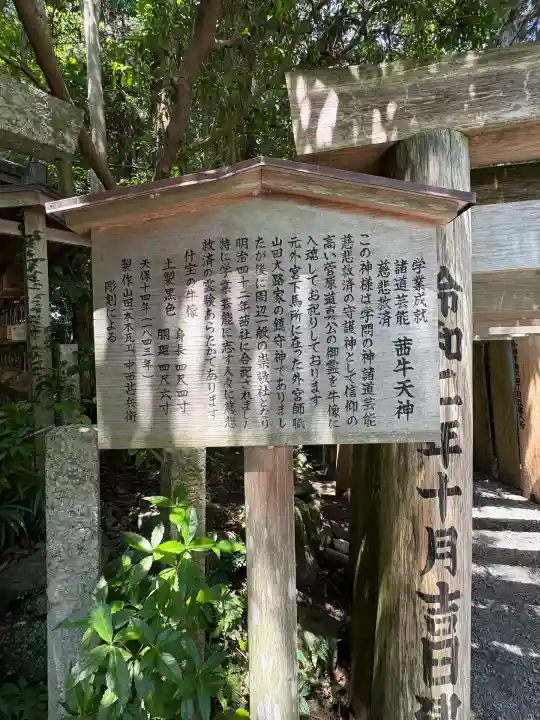 学業成就
諸道芸能　茜牛天神
慈悲救済
この神様は学問の神諸道芸能
慈悲救済の守護神として信仰の
高い菅原道真公の御霊を牛像に
入魂してお祀りしております
元外宮下馬所に在った外宮師職
山田大路家の鎮守神でありまし
たが後に周辺一般の崇敬社となり
明治四十二年諸社に合祀されました
特に学業芸能に志す人々に慈悲
救済の霊験あらたかであります
什宝の牛像　身長四尺四寸
土製黒色　胴廻四尺六寸
天保十四年（一八四三年）
製作山田一本木瓦工中西甚兵衛
彫刻による
令和二年十月吉日建